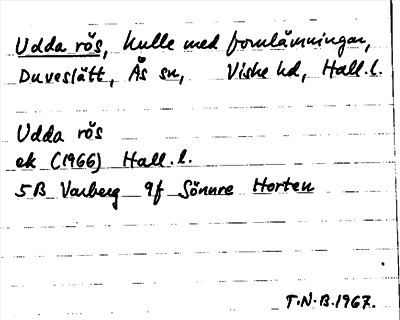 Udda rös, kulle med fornlämningar,
Duveslätt, Ås sn, Viske hd, Hall.l.
Udda rös
ek (1966) Hall.l.
5B Varberg 9f Sönnre Horten
T.N.B.1967.